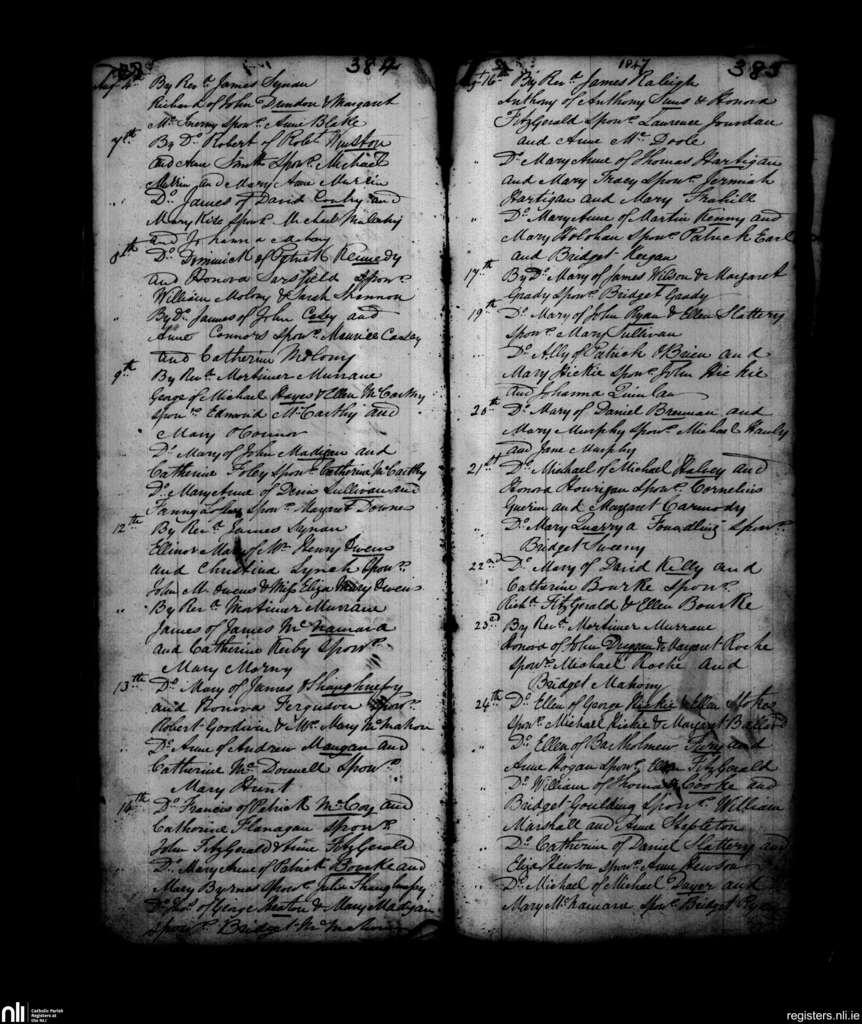 384
Augt 4th By Revd. James Synan
Richard of John Dundon & Margaret
McInerny Spons. Anne Blake
7th By Do. Robert of Robt. Winston
and Ann Smith Spons. Michael
and Mary Anne
" Do. James of David Conby and
Mary Spons. Michael
and Johanna
8th Do. Dominick of Patrick Kennedy
and Honora Sarsfield Spons.
William Molony & Sarah Shannon
" By Do. James of John Casey and
Anne Connors Spons. Maurice Casey
and Catherine Molony
9th By Revd. Mortimer Murrane
George of Michael Hayes & Ellen McCarthy
Spons. Edmond McCarthy and
Mary O'Connor
Do. Mary of John Madigan and
Catherine Foley Spons. Catherine McCarthy
Do. Mary Anne of Denis Sullivan and
Fanny Spons. Margaret Downes
12th By Revd. James Synan
Ellinor Mary of Mr. Henry Owens
and Christina Lynch Spons.
John M. Owens & Miss Eliza Mary Owens
" By Revd. Mortimer Murrane
James of James McNamara
and Catherine Kerby Spons.
Mary Morny
13th Do. Mary of James O'Shaughnessy
and Honora Ferguson Spons.
Robert Goodwin & Mrs. Mary McMahon
Do. Anne of Andrew Mangan and
Catherine McDonnell Spons.
Mary Hunt
14th Do. Francis of Patrick McCoy and
Catherine Flanagan Spons.
John FitzGerald & Anne FitzGerald
Do. Mary Anne of Patrick Bourke and
Mary Byrnes Spons. Julia Shaughnessy
Do. Thos. of George Heaton & Mary Madigan
Spons. Bridget McMahon
1847
385
16th By Revd. James Raleigh
Anthony of Anthony and Honora
FitzGerald Spons. Laurence Jourdan
and Anne McDoole
" Do. Mary Anne of Thomas Hartigan
and Mary Tracy Spons. Jermiah
Hartigan and Mary Frahill
" Do. Mary Anne of Martin Kenny and
Mary Holohan Spons. Patrick Earl
and Bridget Keegan
17th By Do. Mary of James Wilson & Margaret
Grady Spons. Bridget Grady
19th Do. Mary of John Ryan & Ellen Slattery
Spons. Mary Sullivan
" Do. Ally of Patrick O'Brien and
Mary Hickie Spons. John Hickie
and Johanna Quinlan
20th Do. Mary of Daniel Brennan and
Mary Murphy Spons. Michael Hanly
and Jane Murphy
21st Do. Michael of Michael Halvey and
Honora Hourigan Spons. Cornelius
Guerin and Margaret Carmody
" Do. Mary Quarry a Foundling Spons.
Bridget Sweeny
22nd Do. Mary of David Killy and
Catherine Bourke Spons.
Richd. FitzGerald & Ellen Bourke
23d By Revd. Mortimer Murrane
Honora of John & Margaret Roche
Spons. Michael Roche and
Bridget Mahony
24th Do. Ellen of George Hickie & Ellen Stokes
Spons. Michael Hickie & Margaret Ballard
" Do. Ellen of Bartholmew and
Anne Hogan Spons. Ellen FitzGerald
" Do. William of Thomas Cooke and
Bridget Goulding Spons. William
Marshall and Anne Stepleton
" Do. Catherine of Daniel Slattery and
Eliza Hewson Spons. Anne Hewson
" Do. Michael of Michael Dwyer and
Mary McNamara Spons. Bridget Ryan
nli
Catholic Parish
Registers at
the NLI
registers.nli.ie